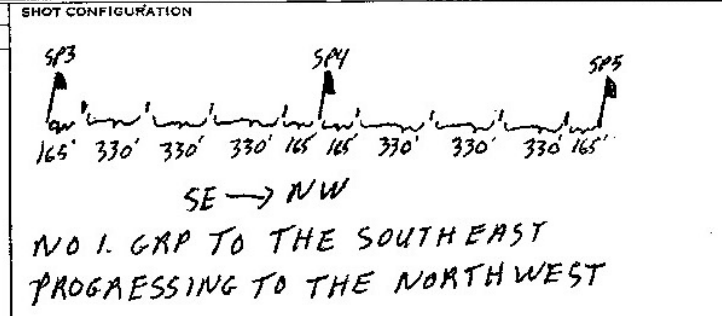 SHOT CONFIGURATION
SP3 SP4 SP5
165' 330' 330' 330' 165' 165' 330' 330' 330' 165'
SE → NW
NO 1. GRP TO THE SOUTHEAST
PROGRESSING TO THE NORTHWEST